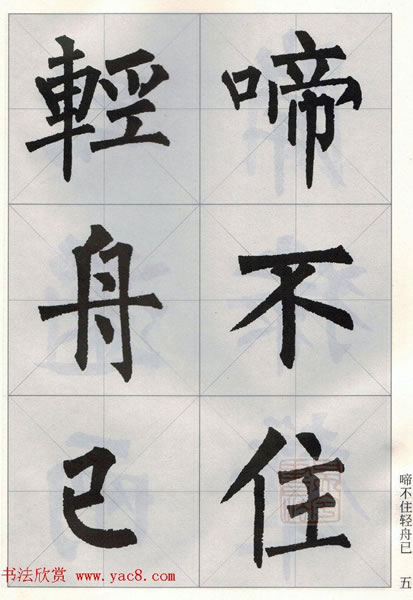 啼不住
輕舟已
啼不住轻舟已 五
书法欣赏 www.yac8.com